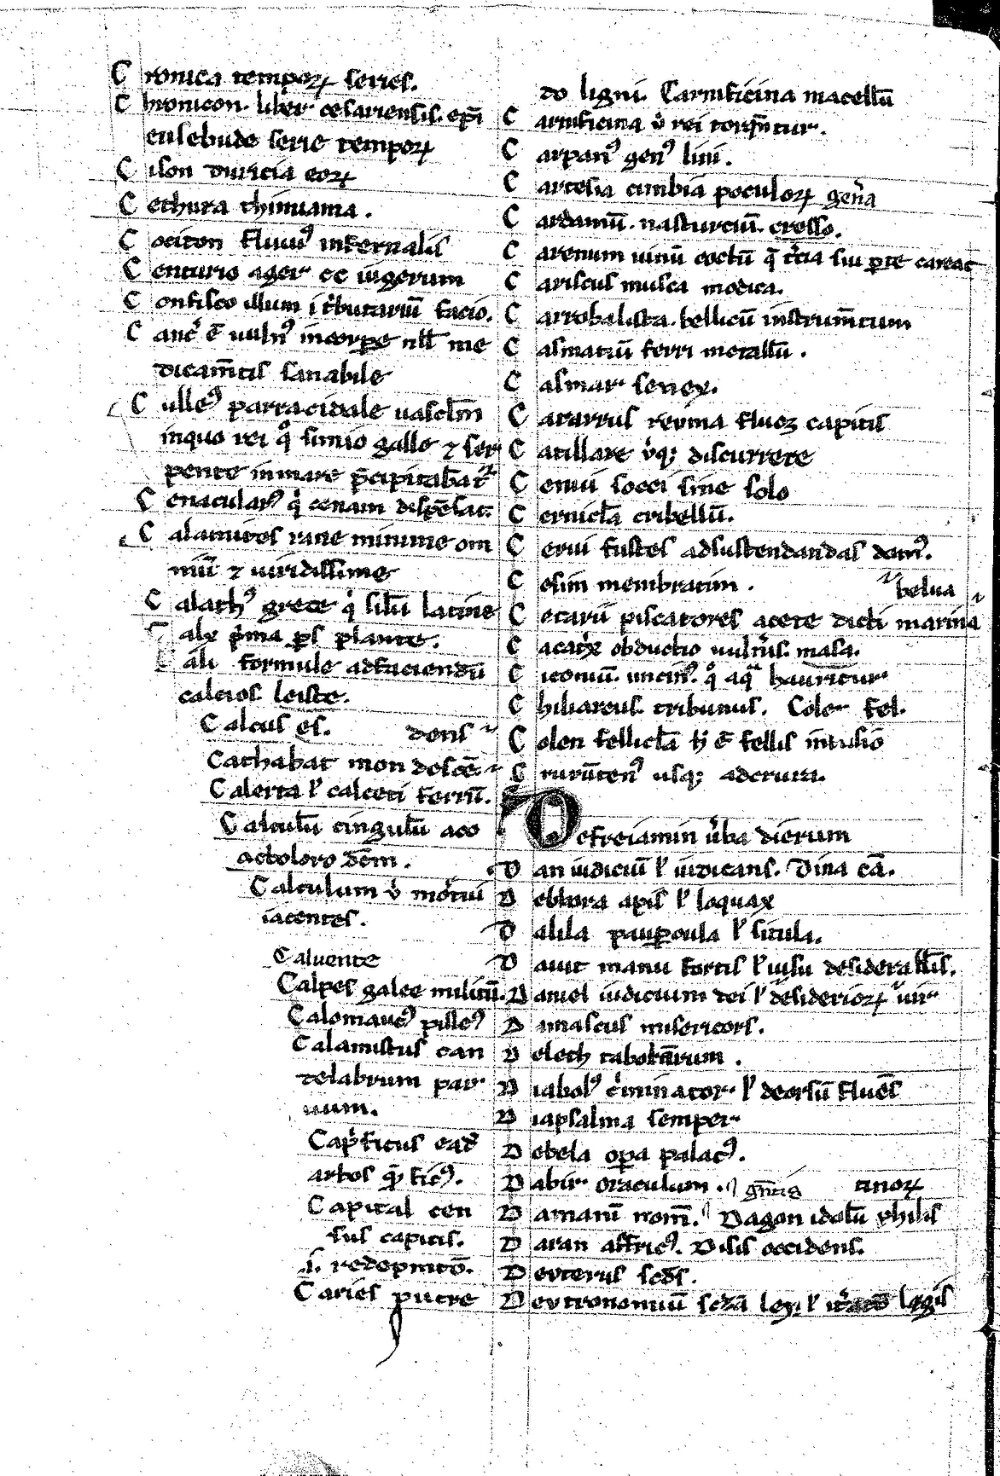 Cronica tempoꝝ series.
Chronicon. liber cesariensis. ep̄i
eusebii de serie tempoꝝ
Cison duricia eoꝝ
Cethura thimiama.
Cociton fluuiꝰ infernalis
Centurio ager cc iugerum
Confisco illum i tͥbutariū facio.
Canc͛ ē uulnꝰ incorꝑe nll̄ me
dicam̄tis sanabile
Culleꝰ parracidale uascl̄m
inquo rei qͦ simio gallo ⁊ ser
pente inmare p̄cipitabāt͛
Cenacularꝰ qͥ cenam dispēsat.
Calamites rane minime om
niū ⁊ uiridissime
Calathꝰ grece qͥ silū latine
alx pͥma ꝑs plante.
ali formule adfaciendū
calcios. leiste.
Calcus es. dens
Cathabat mon descē
Calerta ł calceti ferrū.
Calculū cingulū aco
actoloro d̄em.
Calculum v͛ mortui
iacentes.
Caluente
Calpes galee militū.
Calomaucꝰ pilleꝰ
Calamistus can
telabrum par
uum.
Capͥficus ead̄
arbos qͣ ficꝰ.
Capital cen
sus capitis.
s. redēpnitō.
Caries putre
do ligni. Carnificina macellū
Carnificina v͛ rei torq̄ntur.
Carpanꝰ genꝰ lini.
Cartesia cimbia poculoꝝ gen͛a
Cardamū. nasturciū. cresso.
Carenum uinū coctū q̄ t͛cia sui ꝑte careat
Cariscus musca modica.
Carrobalista. bellicū instrum̄tum
Casmatiū ferri metallū.
Casmar senex.
Catarrus reuma fluoꝫ capitis
Catillare v͛qꝫ discurrere
Cenui socci sine solo
Cernicl̄a cribellū.
Cerui fustes adsustendandas domꝰ.
Cesim membratim. belua
Cetarii piscatores acete dicti marina
Cacatͥx obductio uuln͛is. masa.
Ciconiū. uncinꝰ. qͦ aqͣ hauritur
Chiliarcus. tribunus. Coler fel.
Colen fellicl̄a h̄ ē fellis infusio
Crurūtenꝰ usqꝫ adcrura.
Defreiamin v͛ba dierum
Dan iudiciū ł iudicans. Dina cā.
Debbora apis ł loquax
Dalila pauꝑcula ł situla.
Dauit manu fortis ł uisu desiderall̄is.
Daniel iudicium dei ł desiderioꝝ uir
Damascus misericors.
Delech tabernarum.
Diabolꝰ cͥminator ł deorsū fluēs
Diapsalma semper
Debela oꝑa palacꝰ.
Dabir oraculum. gn̄tis tinoꝝ
Damanū nom̄. Dagon idolū philis
Daran affricꝰ. Disis occidens.
Deuterus scd̄s.
Deutronomiū scd̄a lex. ł it͛atō legis